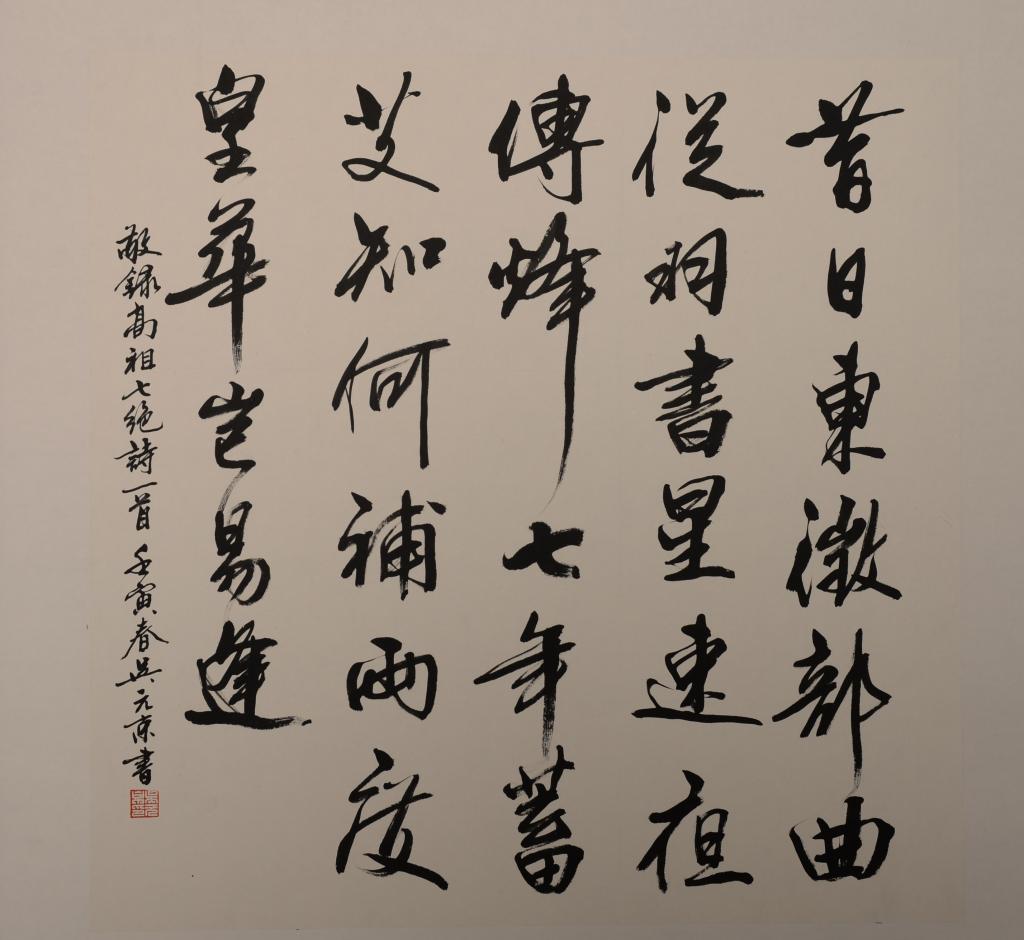 昔日東徵部曲
從羽書星速夜
傳烽七年蓄
艾知何補兩度
皇華豈易逢
敬錄高祖七絕詩一首 壬寅春吳元京書